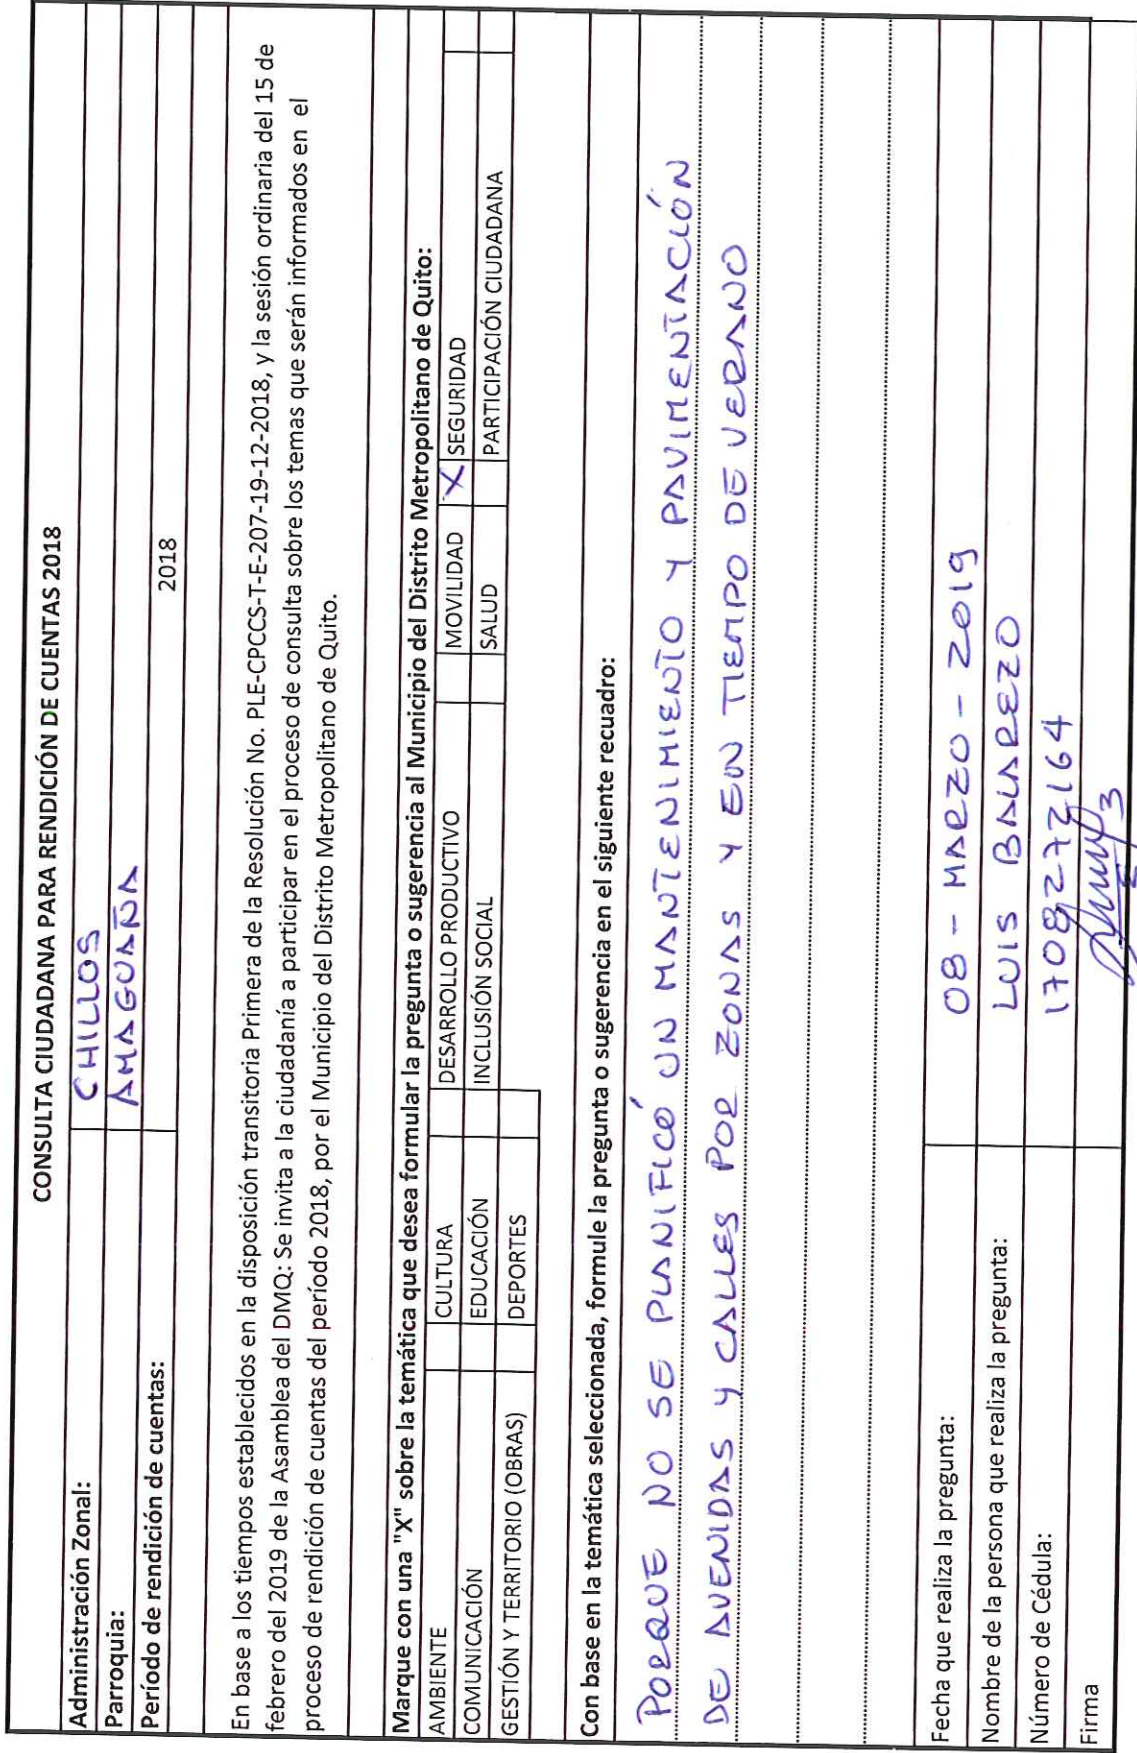 CONSULTA CIUDADANA PARA RENDICIÓN DE CUENTAS 2018
Administración Zonal: CHILLOS
Parroquia: AMAGUAÑA
Período de rendición de cuentas: 2018
En base a los tiempos establecidos en la disposición transitoria Primera de la Resolución No. PLE-CPCCS-T-E-207-19-12-2018, y la sesión ordinaria del 15 de
febrero del 2019 de la Asamblea del DMQ: Se invita a la ciudadanía a participar en el proceso de consulta sobre los temas que serán informados en el
proceso de rendición de cuentas del período 2018, por el Municipio del Distrito Metropolitano de Quito.
Marque con una "X" sobre la temática que desea formular la pregunta o sugerencia al Municipio del Distrito Metropolitano de Quito:
AMBIENTE CULTURA DESARROLLO PRODUCTIVO MOVILIDAD X SEGURIDAD
COMUNICACIÓN EDUCACIÓN INCLUSIÓN SOCIAL SALUD PARTICIPACIÓN CIUDADANA
GESTIÓN Y TERRITORIO (OBRAS) DEPORTES
Con base en la temática seleccionada, formule la pregunta o sugerencia en el siguiente recuadro:
PORQUE NO SE PLANIFICÓ UN MANTENIMIENTO Y PAVIMENTACIÓN
DE AVENIDAS Y CALLES POR ZONAS Y EN TIEMPO DE VERANO
Fecha que realiza la pregunta: 08 - MARZO - 2019
Nombre de la persona que realiza la pregunta: LUIS BALAREZO
Número de Cédula: 1708272164
Firma